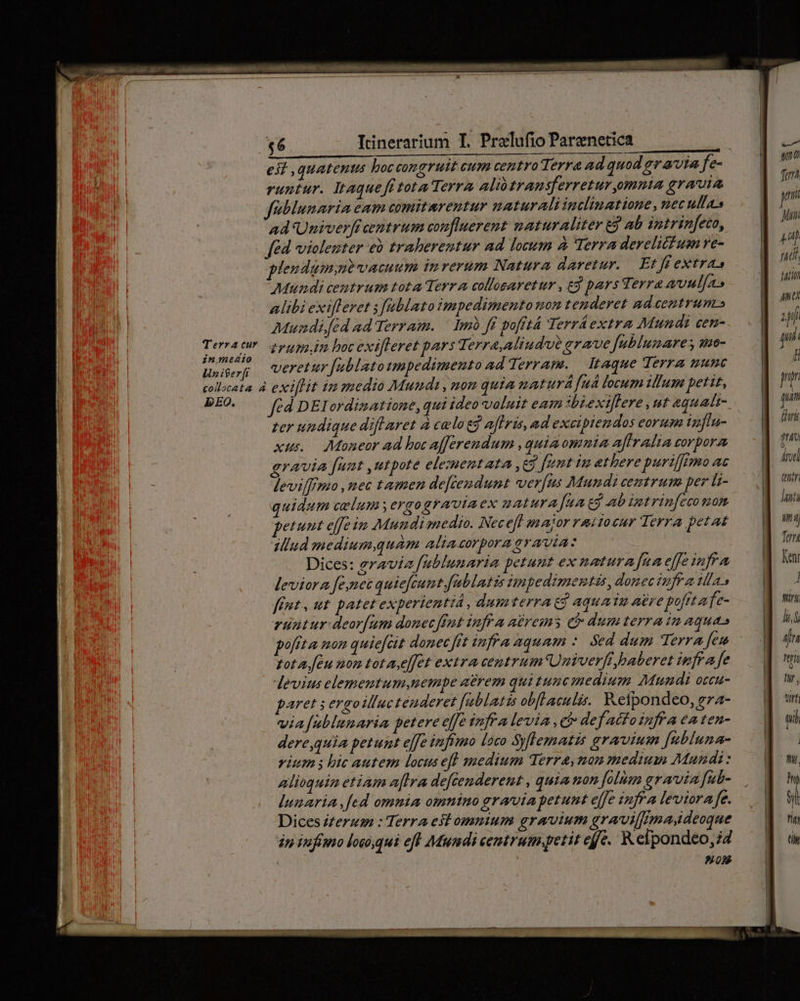 56 Itinerarium I. Prælusio Parænetica
est, quatenus hoc congruit cum centro Terræ ad quod gravia fe-
runtur. Itaque si tota Terra aliò transferretur, omnia gravia
sublunaria eam comitarentur naturali inclinatione, nec ullas
ad Universi centrum confluerent naturaliter & ab intrinseco,
sed violenter eò traherentur ad locum à Terra derelictum re-
plendum, nè vacuum in rerum Natura daretur. Et si extras
Mundi centrum tota Terra collocaretur, & pars Terræ avulsas
alibi existeret; sublato impedimento non tenderet ad centrums
Mundi, sed ad Terram. Imò si positâ Terrâ extra Mundi cen-
Terra cur trum, in hoc existeret pars Terræ, aliudvè grave sublunare, mo-
in medio veretur sublato impedimento ad Terram. Itaque Terra nunc
Universi
collocata à existit in medio Mundi, non quia naturâ suâ locum illum petit,
DEO. sed DEI ordinatione, qui ideo voluit eam ibi existere, ut æquali-
ter undique distaret à cælo & astris, ad excipiendos eorum influ-
xus. Moneor ad hoc asserendum, quia omnia astralia corpora
gravia sunt, utpote elementata, & sunt in æthere purissimo ac
levissimo, nec tamen descendunt versus Mundi centrum per li-
quidum cælum; ergo gravia ex natura sua & ab intrinseco non
petunt esse in Mundi medio. Nec est major ratio cur Terra petat
illud medium, quàm alia corpora gravia:
Dices: gravia sublunaria petunt ex natura sua esse infra
leviora se, nec quiescunt, sublatis impedimentis, donec infra illas
sint, ut patet experientiâ, dum terra & aqua in aëre posita fe-
runtur deorsum donec sint infra aërem; & dum terra in aquas
posita non quiescit donec sit infra aquam: Sed dum Terra seu
tota, seu non tota, esset extra centrum Universi, haberet infra se
levius elementum, nempe aërem qui tunc medium Mundi occu-
paret; ergo illuc tenderet sublatis obstaculis. Respondeo, gra-
via sublunaria petere esse infra levia, & de facto infra ea ten-
dere, quia petunt esse infimo loco Systematis gravium subluna-
rium; hic autem locus est medium Terræ, non medium Mundi:
alioquin etiam astra descenderent, quia non solùm gravia sub-
lunaria, sed omnia omnino gravia petunt esse infra leviora se.
Dices iterum: Terra est omnium gravium gravissima, ideoque
in infimo loco, qui est Mundi centrum, petit esse. Respondeo, id
non